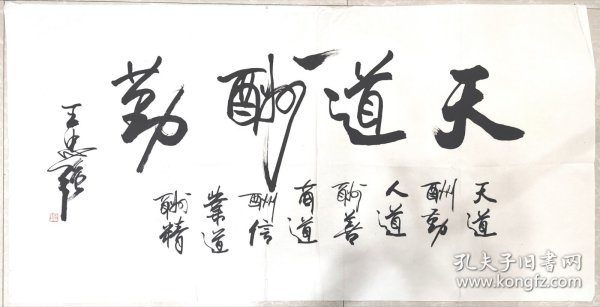 天道酬勤
天道
酬勤
人道
酬善
商道
酬信
業道
酬精
王忠
孔夫子旧书网
www.kongfz.com